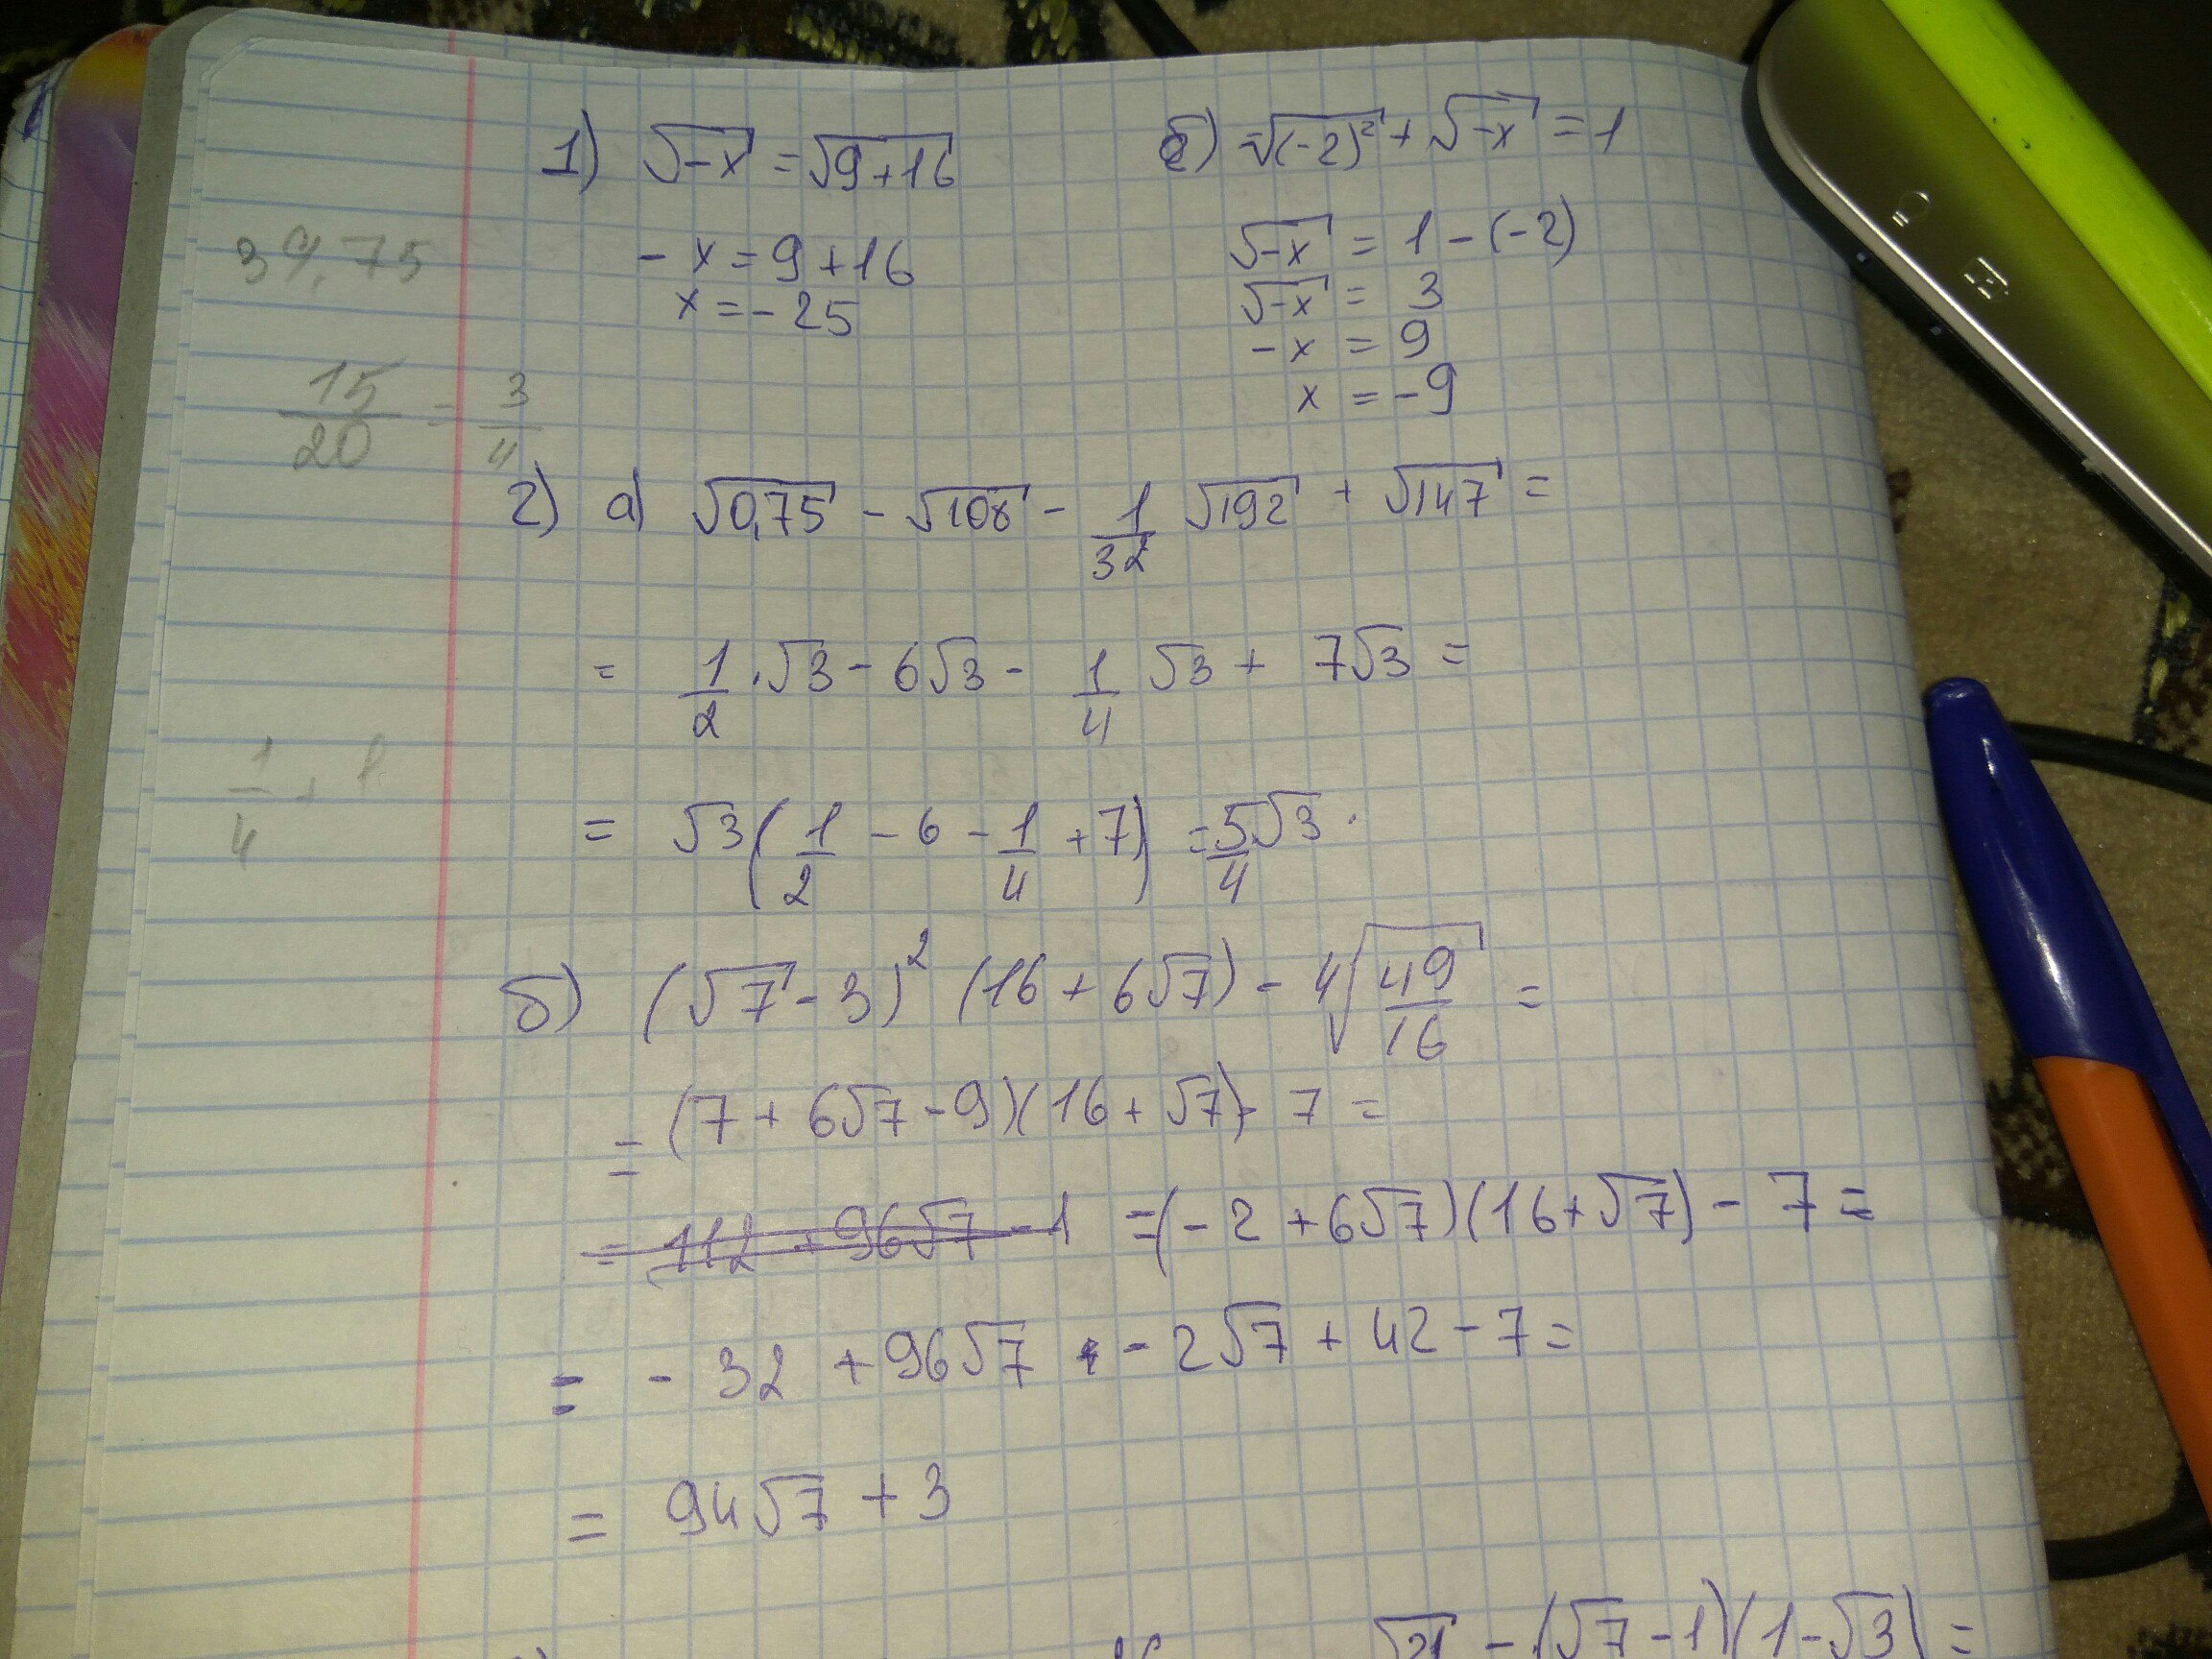 1) √-x = √9+16
б) -√(-2)² + √-x = 1
- x = 9 + 16
x = - 25
√-x = 1 - (-2)
√-x = 3
- x = 9
x = - 9
39,75
15/20 = 3/4
2) а) √0,75 - √108 - 1/32 √192 + √147 =
= 1/2 · √3 - 6√3 - 1/4 √3 + 7√3 =
1/4 +
= √3 (1/2 - 6 - 1/4 + 7) = 5/4 √3 .
б) (√7 - 3)² (16 + 6√7) - 4√49/16 =
= (7 + 6√7 - 9)(16 + √7) - 7 =
= 112 + 96√7 - 1 = (- 2 + 6√7)(16 + √7) - 7 =
= - 32 + 96√7 - 2√7 + 42 - 7 =
= 94√7 + 3
√21 - (√7 - 1)(1 - √3) =